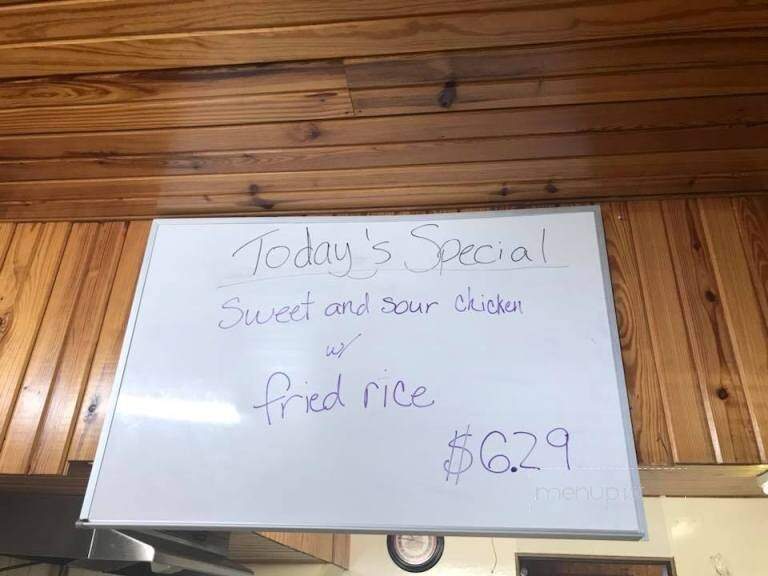 Today's Special
Sweet and Sour Chicken
w/
fried rice
$6.29
menupix